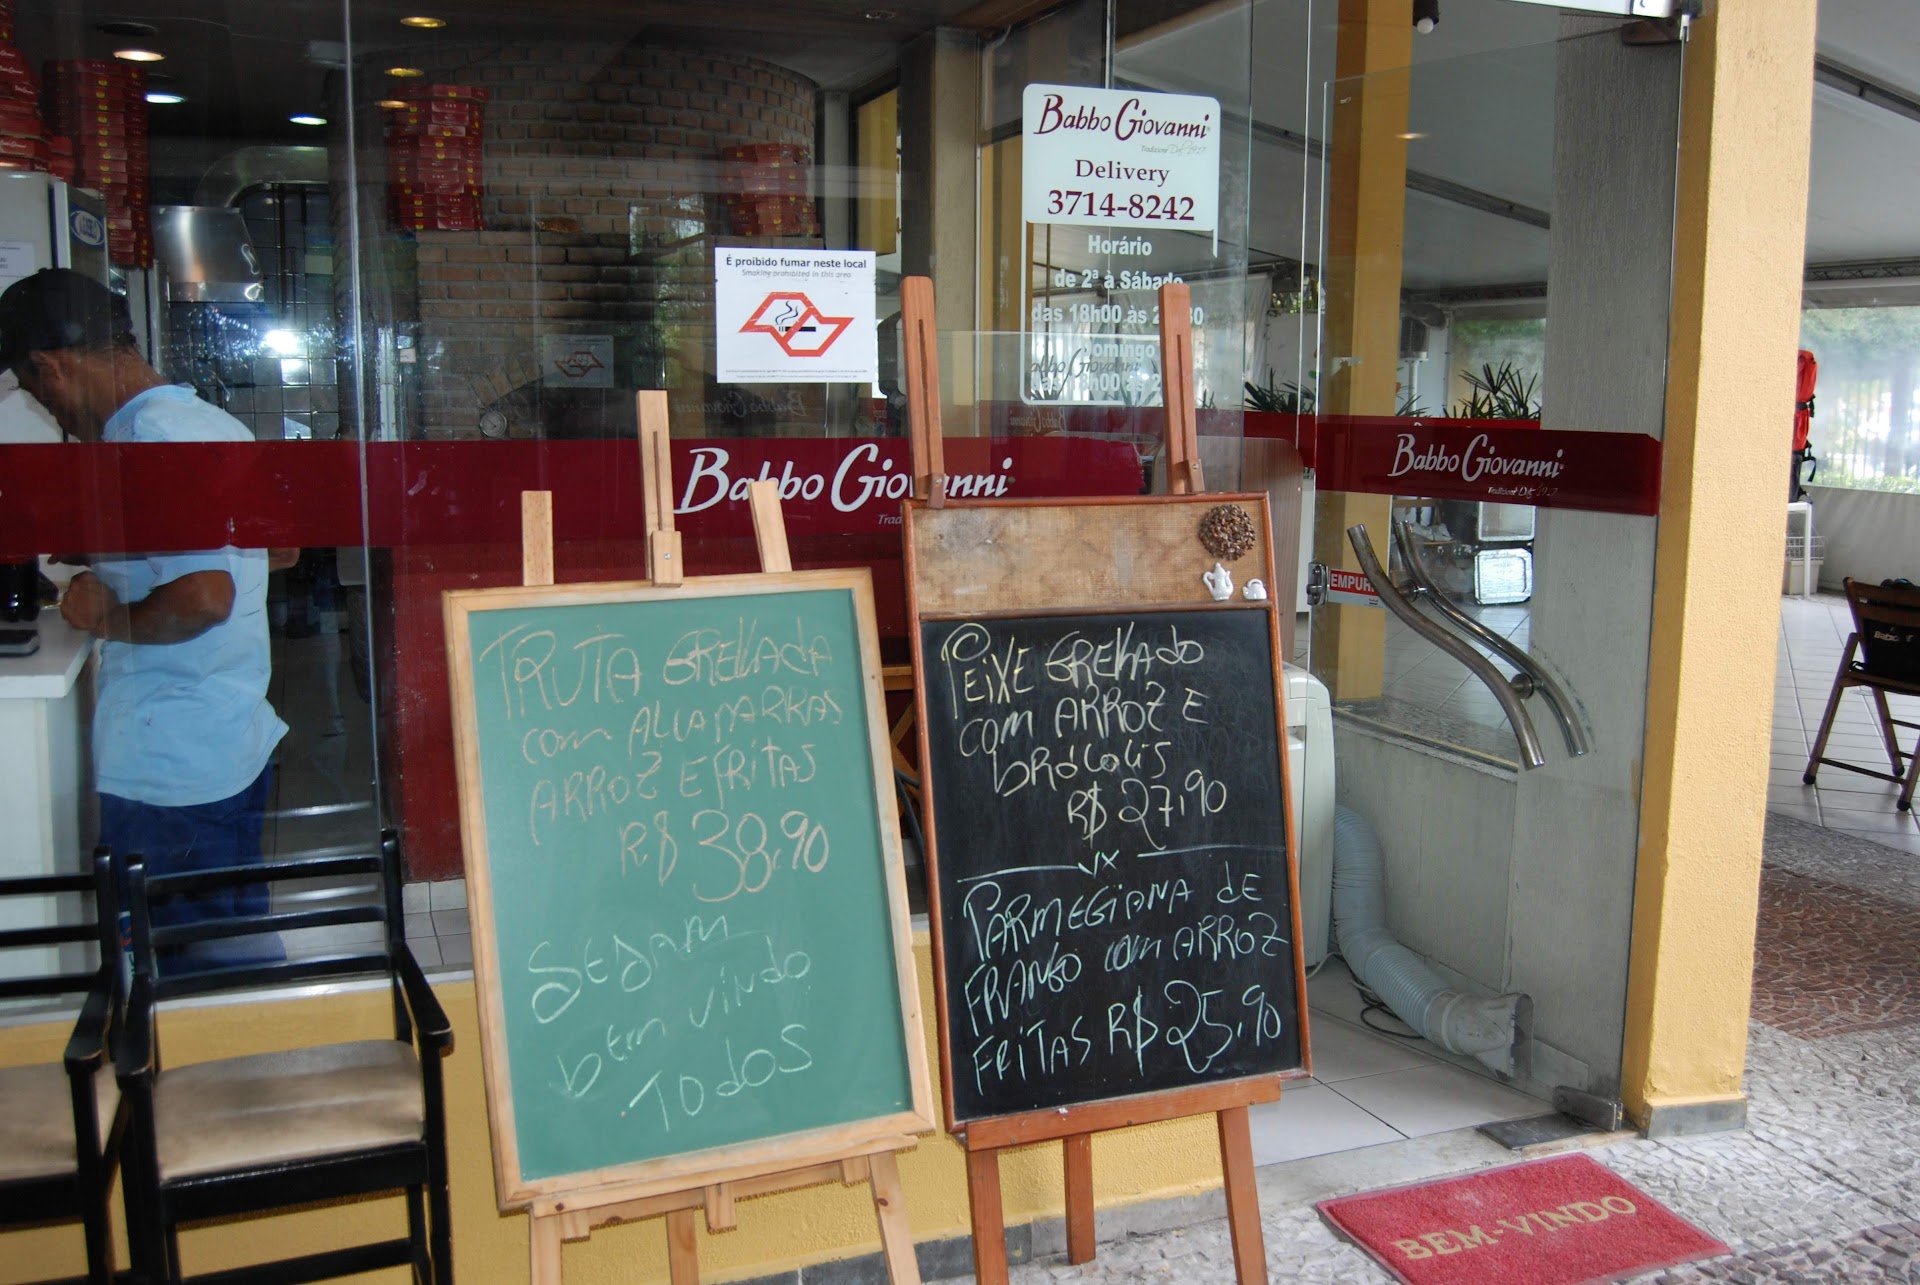 Babbo Giovanni
Tradizione Dal 1917
Delivery
3714-8242
Horário
de 2ª à Sábado
das 18h00 às
domingo
das 18h00 às
É proibido fumar neste local
Smoking prohibited in this area
Babbo Giovanni
Babbo Giovanni
Tradizione Dal 1917
EMPUR
TRUTA GRELLADA
COM ALCAPARRAS
ARROZ E FRITAS
R$ 38,90
SEJAM
bem vindo
TODOS
PEIXE GRELLADO
COM ARROZ E
brócolis
R$ 27,90
VX
PARMEGIANA DE
FRANGO COM ARROZ
FRITAS R$ 25,90
BEM-VINDO